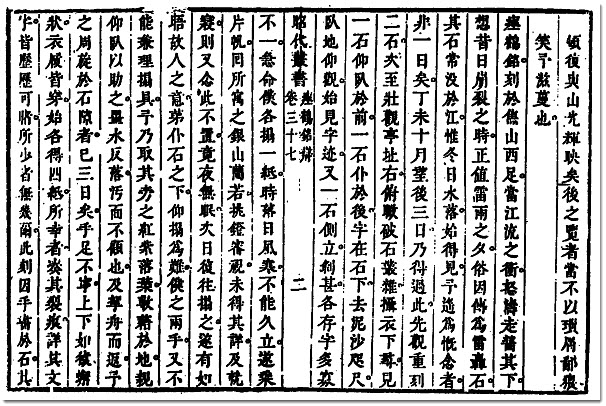 頓復與山先輝映矣後之覽者當不以瑣屑鄙猥
笑予　蔓也
瘞鶴銘刻於焦山西足當江流之衝怒濤走齧其下
想昔日崩裂之時正值雷雨之夕俗因傳為雷轟石
其石常沒於江惟冬日水落始得見予遊焉慨念者
非一日矣丁未十月望後三日乃得過此先觀重刻
二石次至壯觀亭址右俯瞰破石叢雜攝衣下尋見
一石仰臥於前一石仆於後字在石下去泥沙咫尺
臥地仰觀始見字迹又一石側立剝甚各存字多寡
昭代叢書 瘞鶴銘辯 卷三十七 二
不一急命僕各搨一紙時落日風寒不能久立遂乘
片帆回所寓之銀山蘭若挑燈審視未得其詳及就
寢則又念此不置竟夜無眠次日復往搨之遂有如
晤故人之意第仆石之下仰搨為難僕之兩手又不
能兼理搨具予乃取其旁之紅葉落葉敷藉於地親
仰臥以助之墨水反落污面而不顧也及拏舟而返予
之周旋於石隙者已三日矣手足不寧上下如猿
狀衣履皆穿始各得四紙所幸者裝其裂痕詳其文
字皆歷歷可　所少者無幾爾此刻因手搨於石其